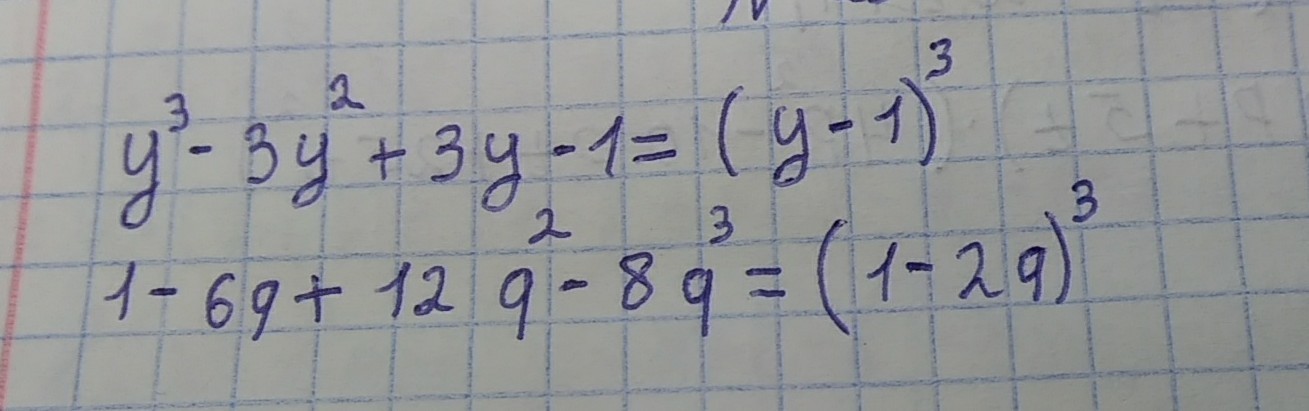 y³ - 3y² + 3y - 1 = (y - 1)³
1 - 6q + 12q² - 8q³ = (1 - 2q)³